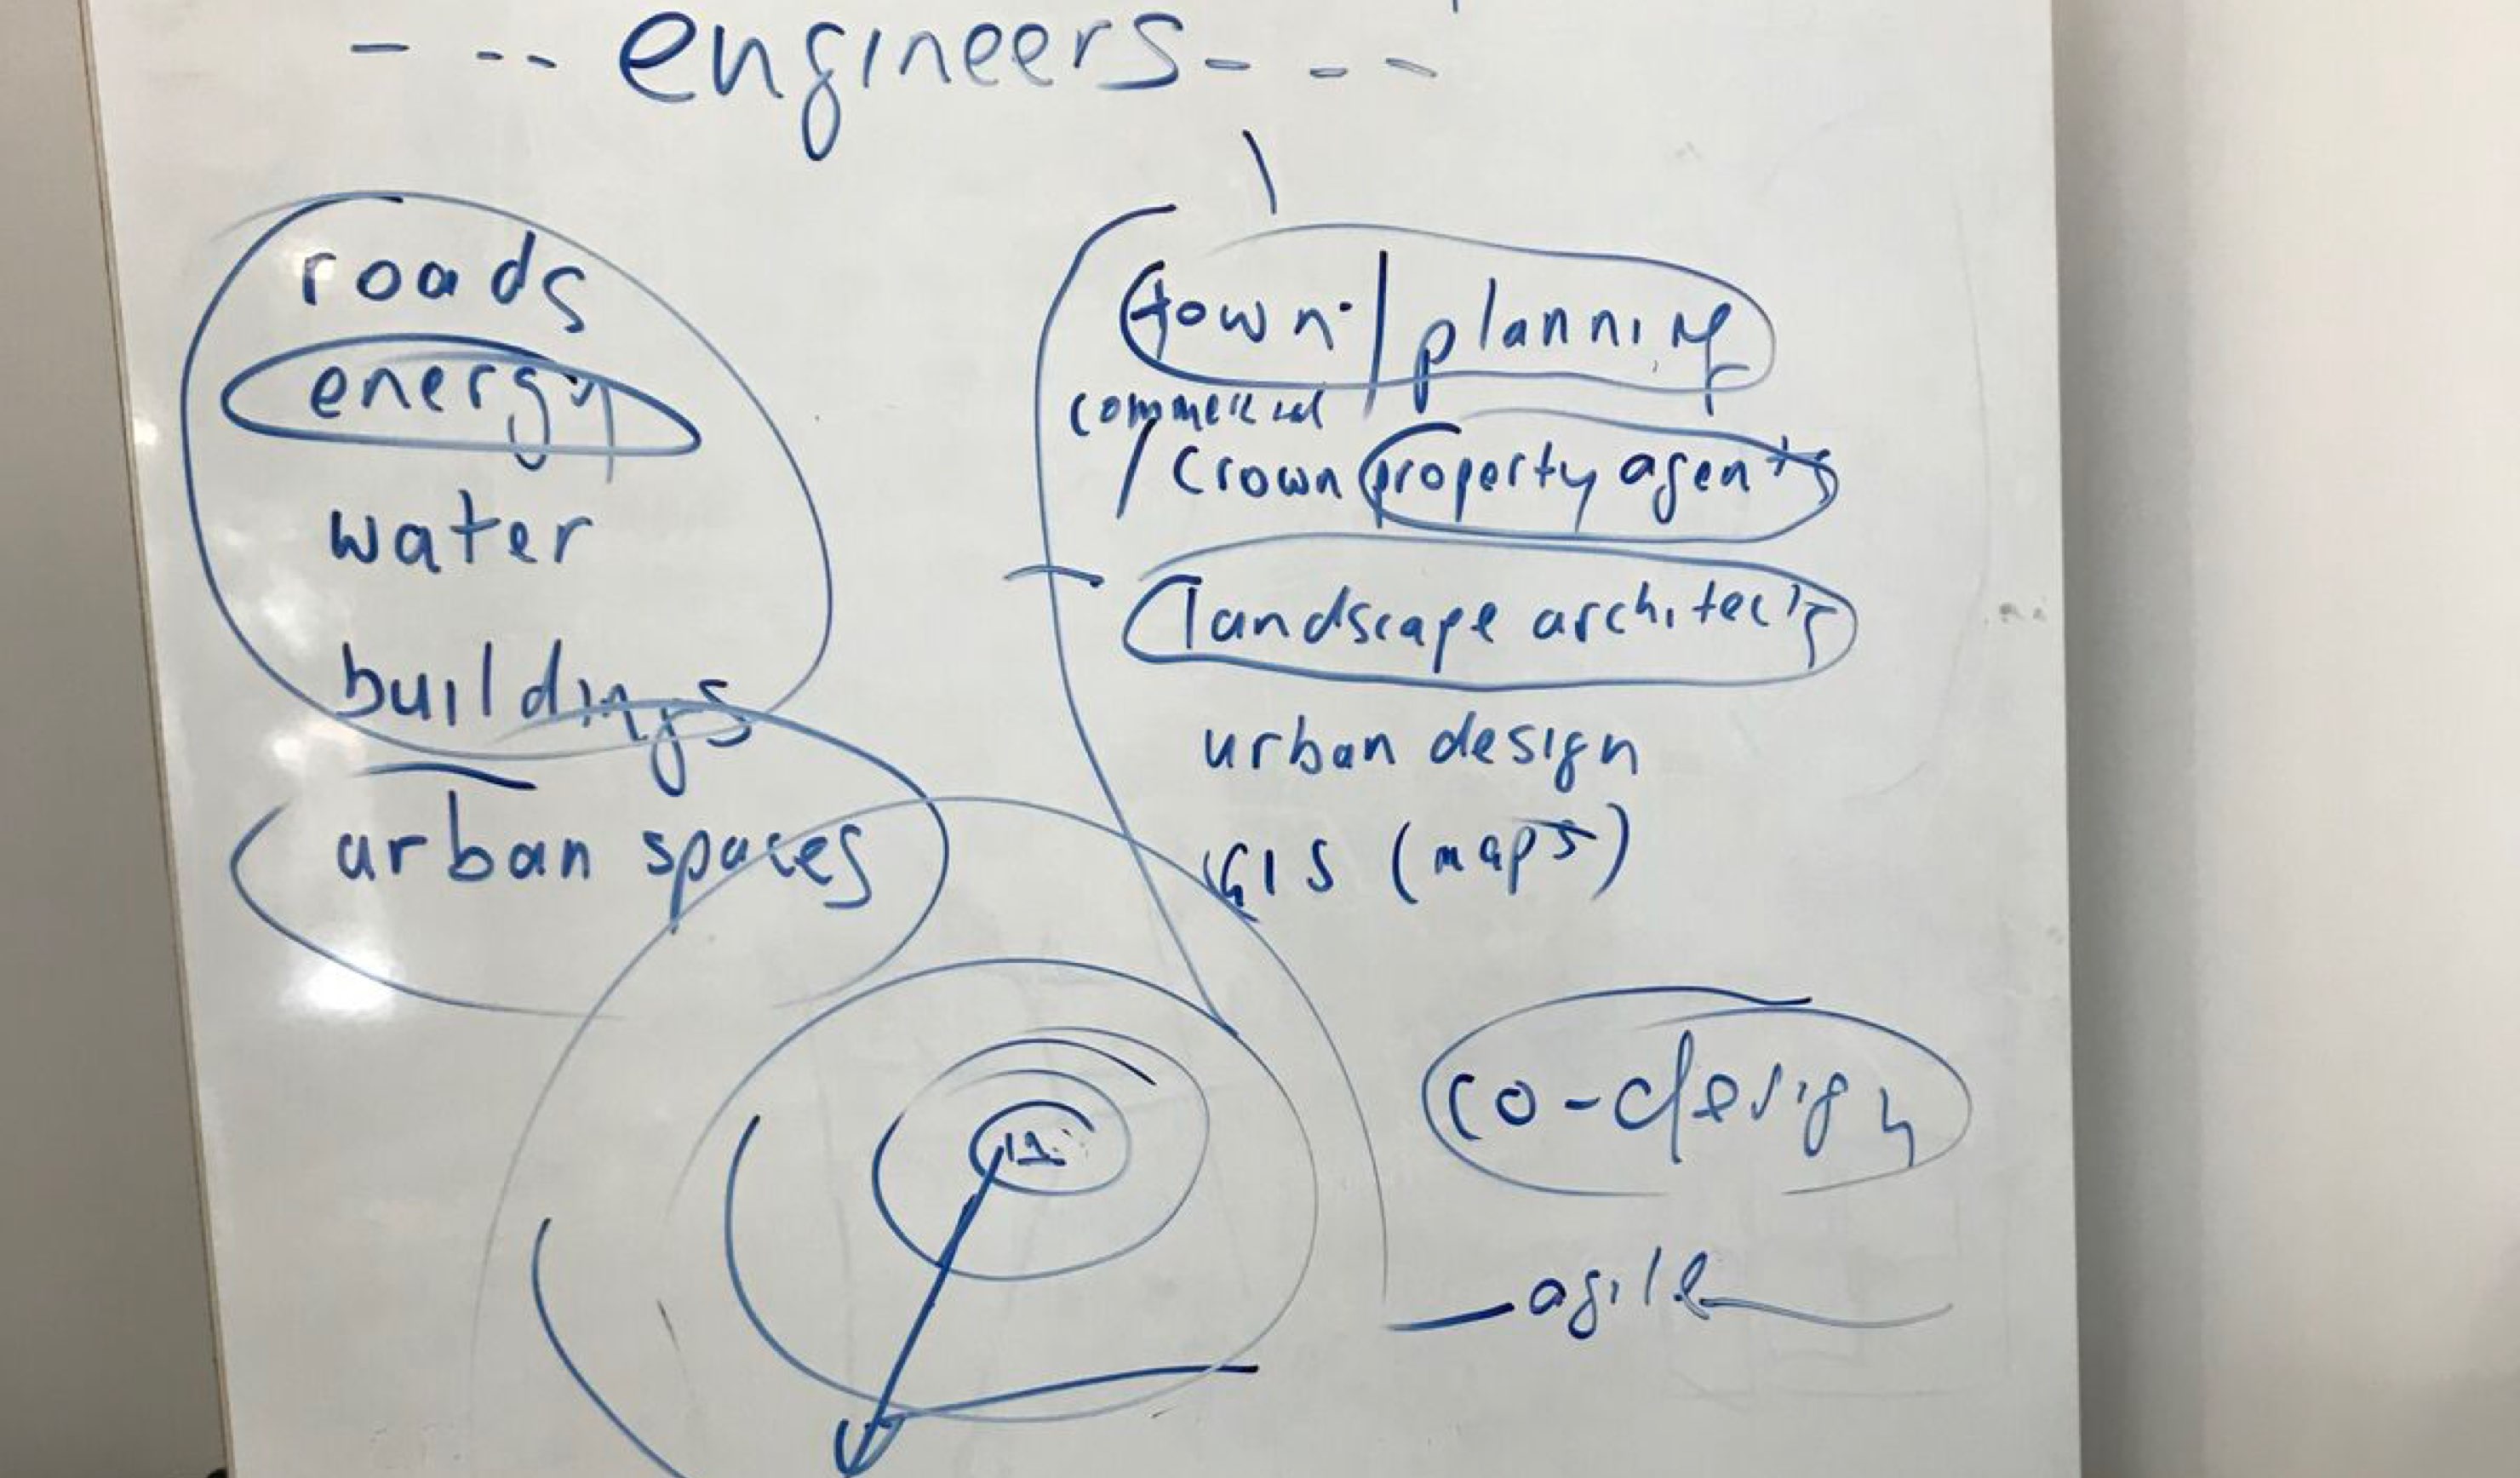 - -- engineers- - -
roads
energy
water
buildings
urban spaces
town / planning
commercial
/ Crown property agents
landscape architects
urban design
GIS (maps)
co-design
agile